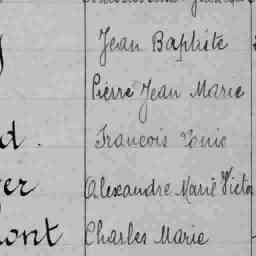 Jean Baptiste
Pierre Jean Marie
d. François Louis
er Alexandre Marie Victor
ont Charles Marie